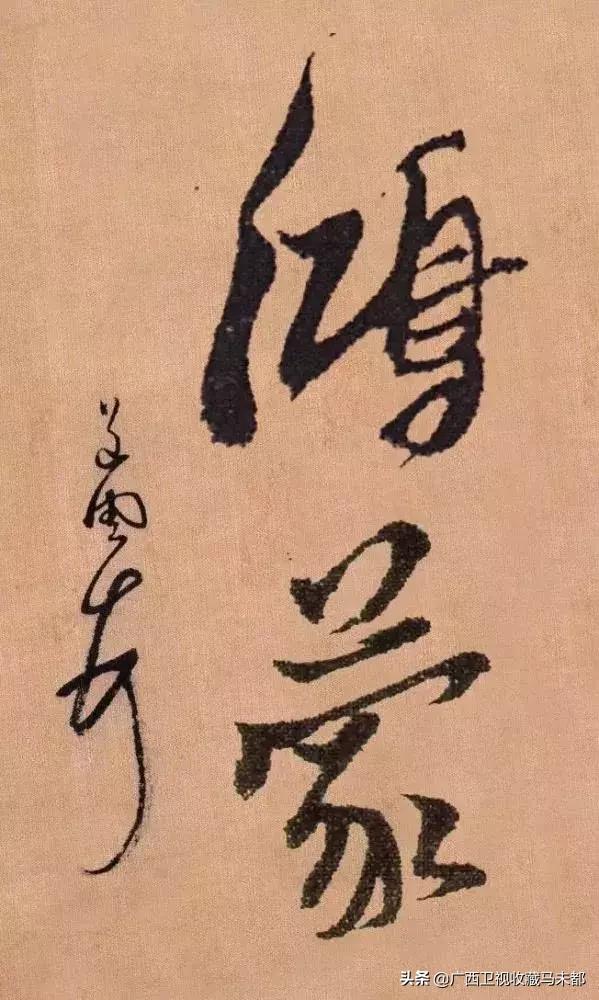 鴻蒙
头条 @广西卫视收藏马未都